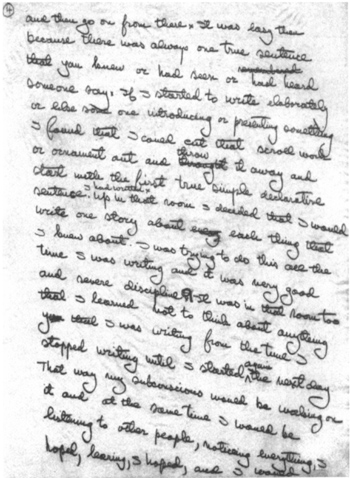 4
and then go on from there x It was easy then
because there was always one true sentence
that you knew or had seen or had heard
someone say. If I started to write elaborately
or else some one introducing or presenting something
I found that I could cut that scroll work
or ornament out and throw it away and
start with the first true simple declarative
sentence I had written x Up in that room I decided that I would
write one story about every each thing that
I knew about. I was trying to do this all the
time I was writing and it was very good
and severe discipline ¶ It was in that room too
that I learned not to think about anything
that I was writing from the time I
stopped writing until I started again the next day
That way my subconscious would be working on
it and at the same time I would be
listening to other people, noticing everything, I
hoped, learing, I hoped, and I would